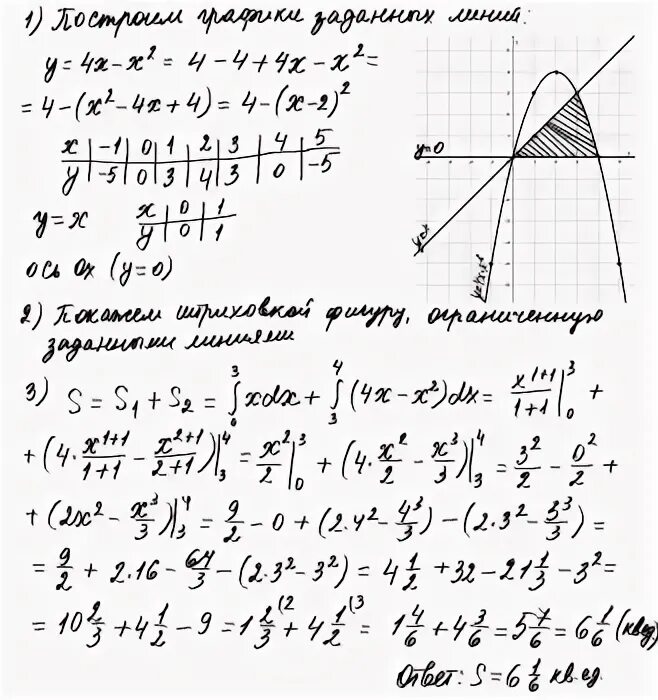 1) Построим графики заданных линий:
y = 4x - x² = 4 - 4 + 4x - x² =
= 4 - (x² - 4x + 4) = 4 - (x - 2)²
x | -1 | 0 | 1 | 2 | 3 | 4 | 5
y | -5 | 0 | 3 | 4 | 3 | 0 | -5
y = x
x | 0 | 1
y | 0 | 1
ось Ox (y = 0)
y=0
y=x
y=4x-x²
2) Покажем штриховкой фигуру, ограниченную
заданными линиями
3) S = S₁ + S₂ = ∫₀³ xdx + ∫₃⁴ (4x - x²)dx = x¹⁺¹/1+1 |₀³ +
+ (4 · x¹⁺¹/1+1 - x²⁺¹/2+1)|₃⁴ = x²/2 |₀³ + (4 · x²/2 - x³/3)|₃⁴ = 3²/2 - 0²/2 +
+ (2x² - x³/3)|₃⁴ = 9/2 - 0 + (2·4² - 4³/3) - (2·3² - 3³/3) =
= 9/2 + 2·16 - 64/3 - (2·3² - 3²) = 4 1/2 + 32 - 21 1/3 - 3² =
= 10 2/3 + 4 1/2 - 9 = 1 2/3 (2 + 4 1/2 (3 = 1 4/6 + 4 3/6 = 5 7/6 = 6 1/6 (кв.ед)
Ответ: S = 6 1/6 кв.ед.